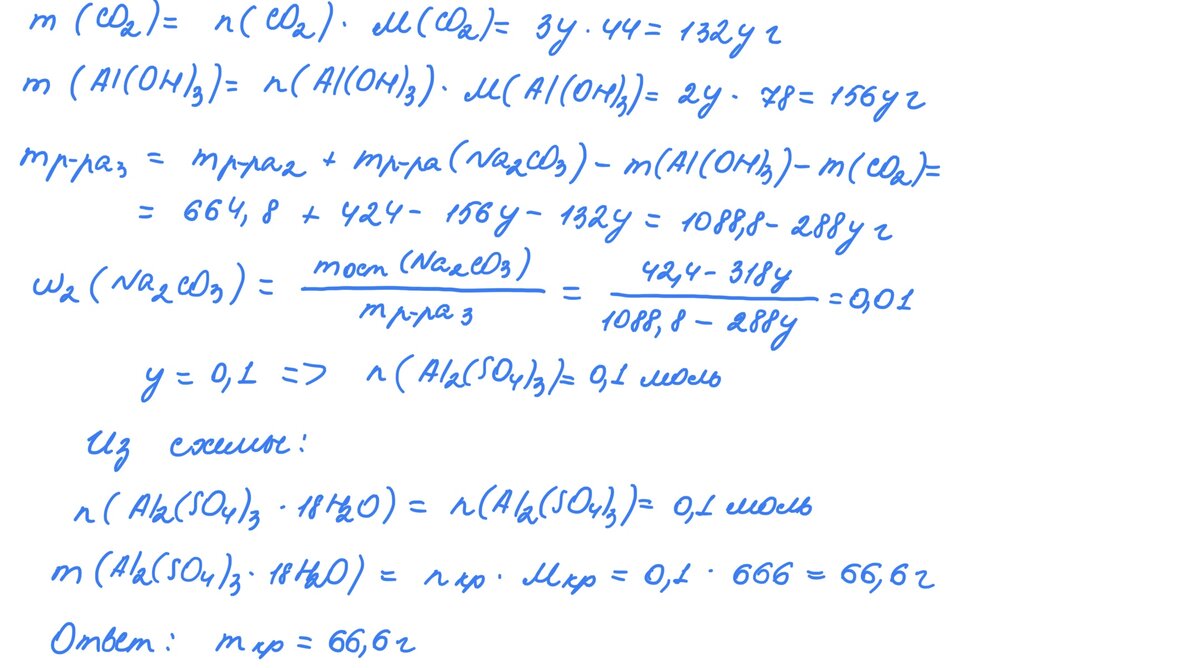 m (CO₂) = n(CO₂) · M(CO₂) = 3y · 44 = 132y г
m (Al(OH)₃) = n(Al(OH)₃) · M(Al(OH)₃) = 2y · 78 = 156y г
mр-ра₃ = mр-ра₂ + mр-ра(Na₂CO₃) − m(Al(OH)₃) − m(CO₂) =
= 664,8 + 424 − 156y − 132y = 1088,8 − 288y г
ω₂(Na₂CO₃) = mост(Na₂CO₃) / mр-ра₃ = 42,4 − 318y / 1088,8 − 288y = 0,01
y = 0,1 => n(Al₂(SO₄)₃) = 0,1 моль
Из схемы:
n(Al₂(SO₄)₃ · 18H₂O) = n(Al₂(SO₄)₃) = 0,1 моль
m(Al₂(SO₄)₃ · 18H₂O) = nкр · Mкр = 0,1 · 666 = 66,6 г
Ответ: mкр = 66,6 г